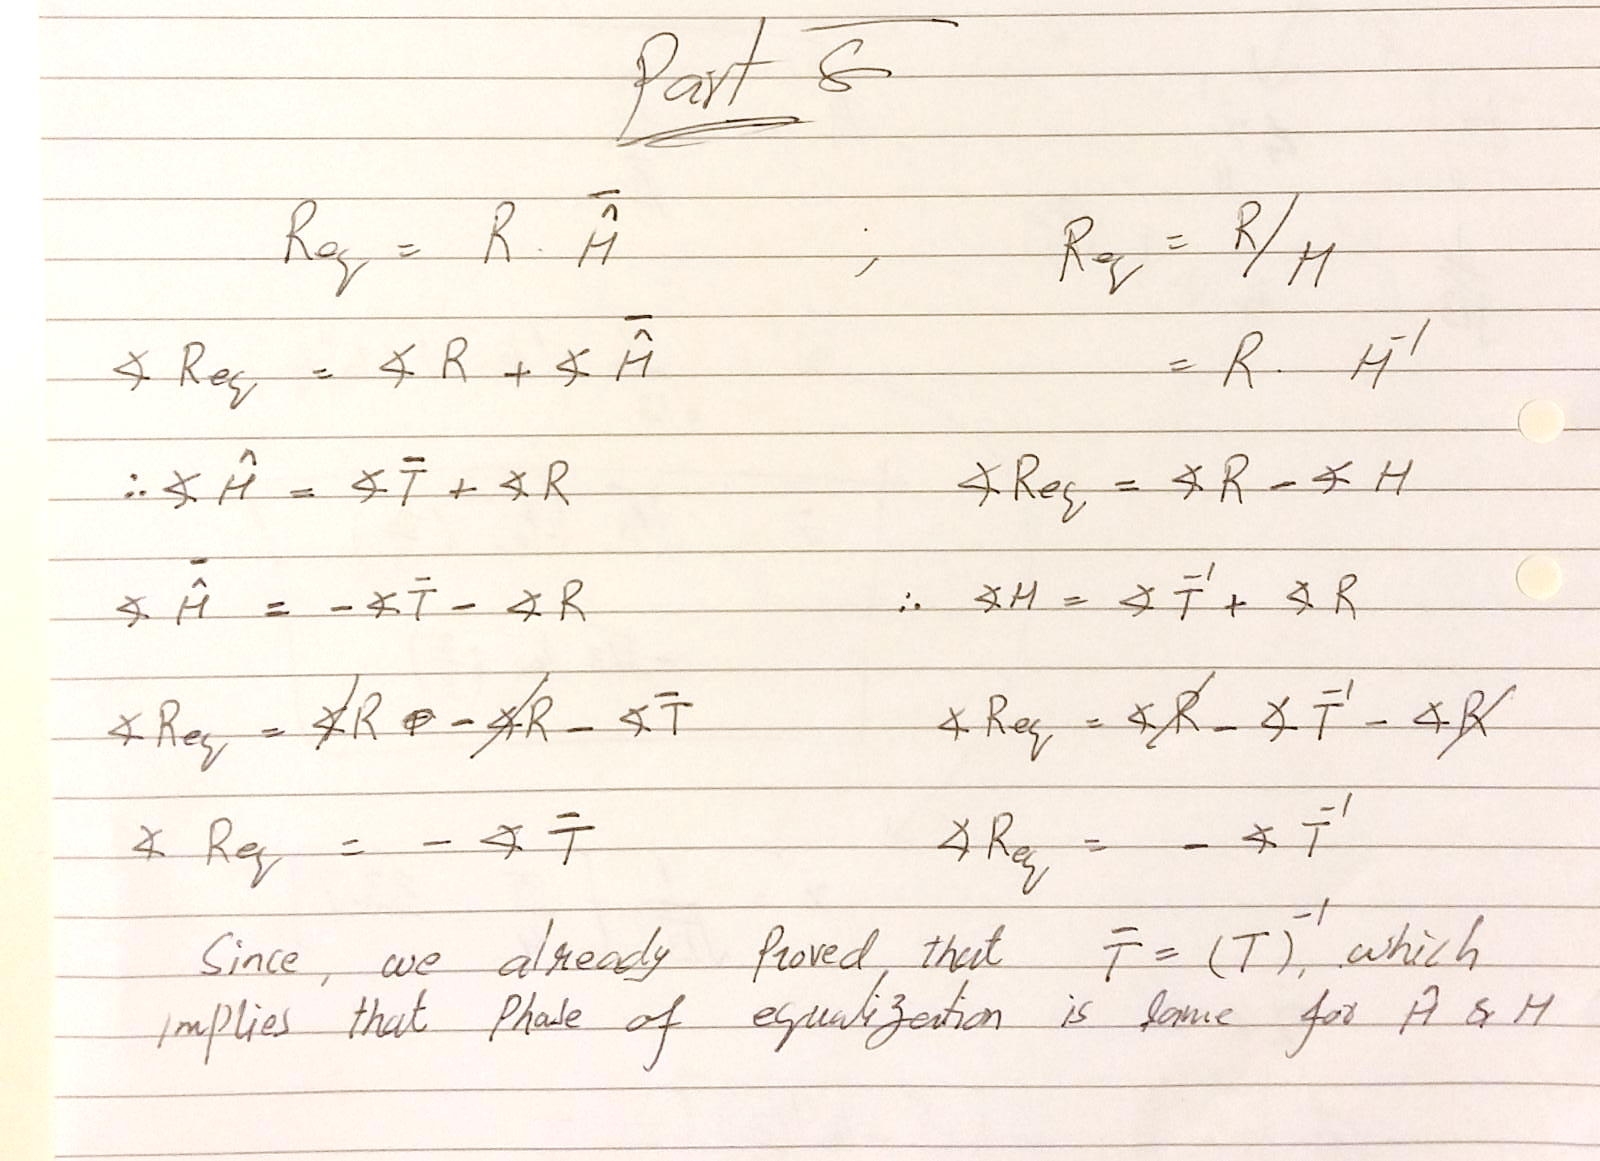 Part 5
R_eq = R . \bar{\hat{H}} ; R_eq = R/H
∡ R_eq = ∡ R + ∡ \bar{\hat{H}} = R . H^{-1}
∴ ∡ Ĥ = ∡ T̄ + ∡ R ∡ R_eq = ∡ R - ∡ H
∡ \bar{\hat{H}} = - ∡ T̄ - ∡ R ∴ ∡ H = ∡ T^{-1} + ∡ R
∡ R_eq = ∡ R - ∡ R - ∡ T̄ ∡ R_eq = ∡ R - ∡ T^{-1} - ∡ R
∡ R_eq = - ∡ T̄ ∡ R_eq = - ∡ T^{-1}
Since, we already Proved, that T̄ = (T)^{-1}, which
implies that Phase of equalization is same for Ĥ & H